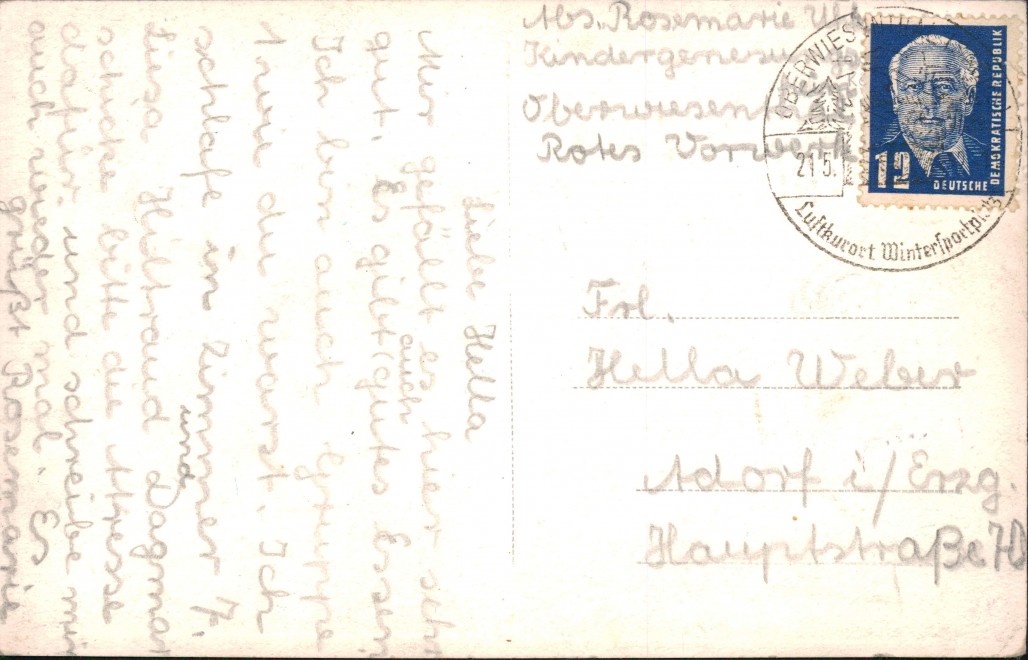 Abs. Rosemarie
Kindergenesu
Oberwiesen
Rotes Vorwerk
OBERWIESENTHAL
21.5.
Luftkurort Wintersportplatz
12
DEUTSCHE
DEMOKRATISCHE REPUBLIK
Frl.
Hella Weber
Adorf i/Erzg.
Hauptstraße
Liebe Hella
Mir gefällt es hier sehr
gut. Es gibt (auch gutes Essen
Ich bin auch Gruppe
1 wie du warst. Ich
schlafe in Zimmer 7.
Lisa Hiltraud und Dagmar
schicke bitte die Atresse
dafür. und schreibe mir
auch wieder mal. Es
grüßt Rosemarie